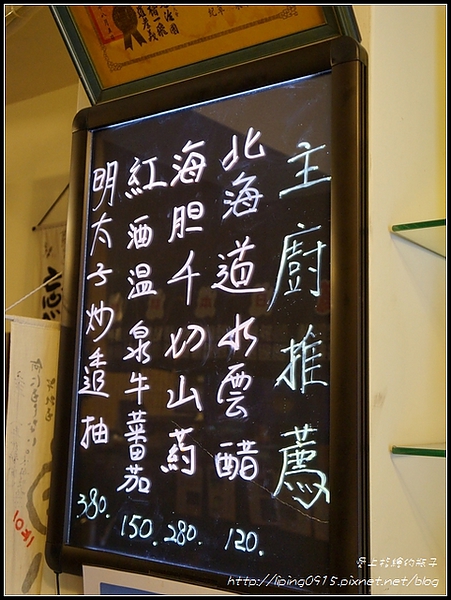 主廚推薦
北海道水雲醋 120.
海胆千切山葯 280.
紅酒温泉牛蕃茄 150.
明太子炒透抽 380.
http://liping0915.pixnet.net/blog